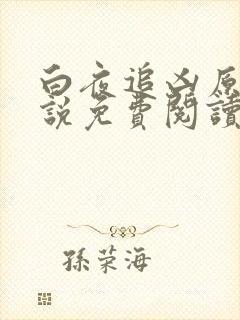 白夜追凶原
說免費閱讀
孫荣海